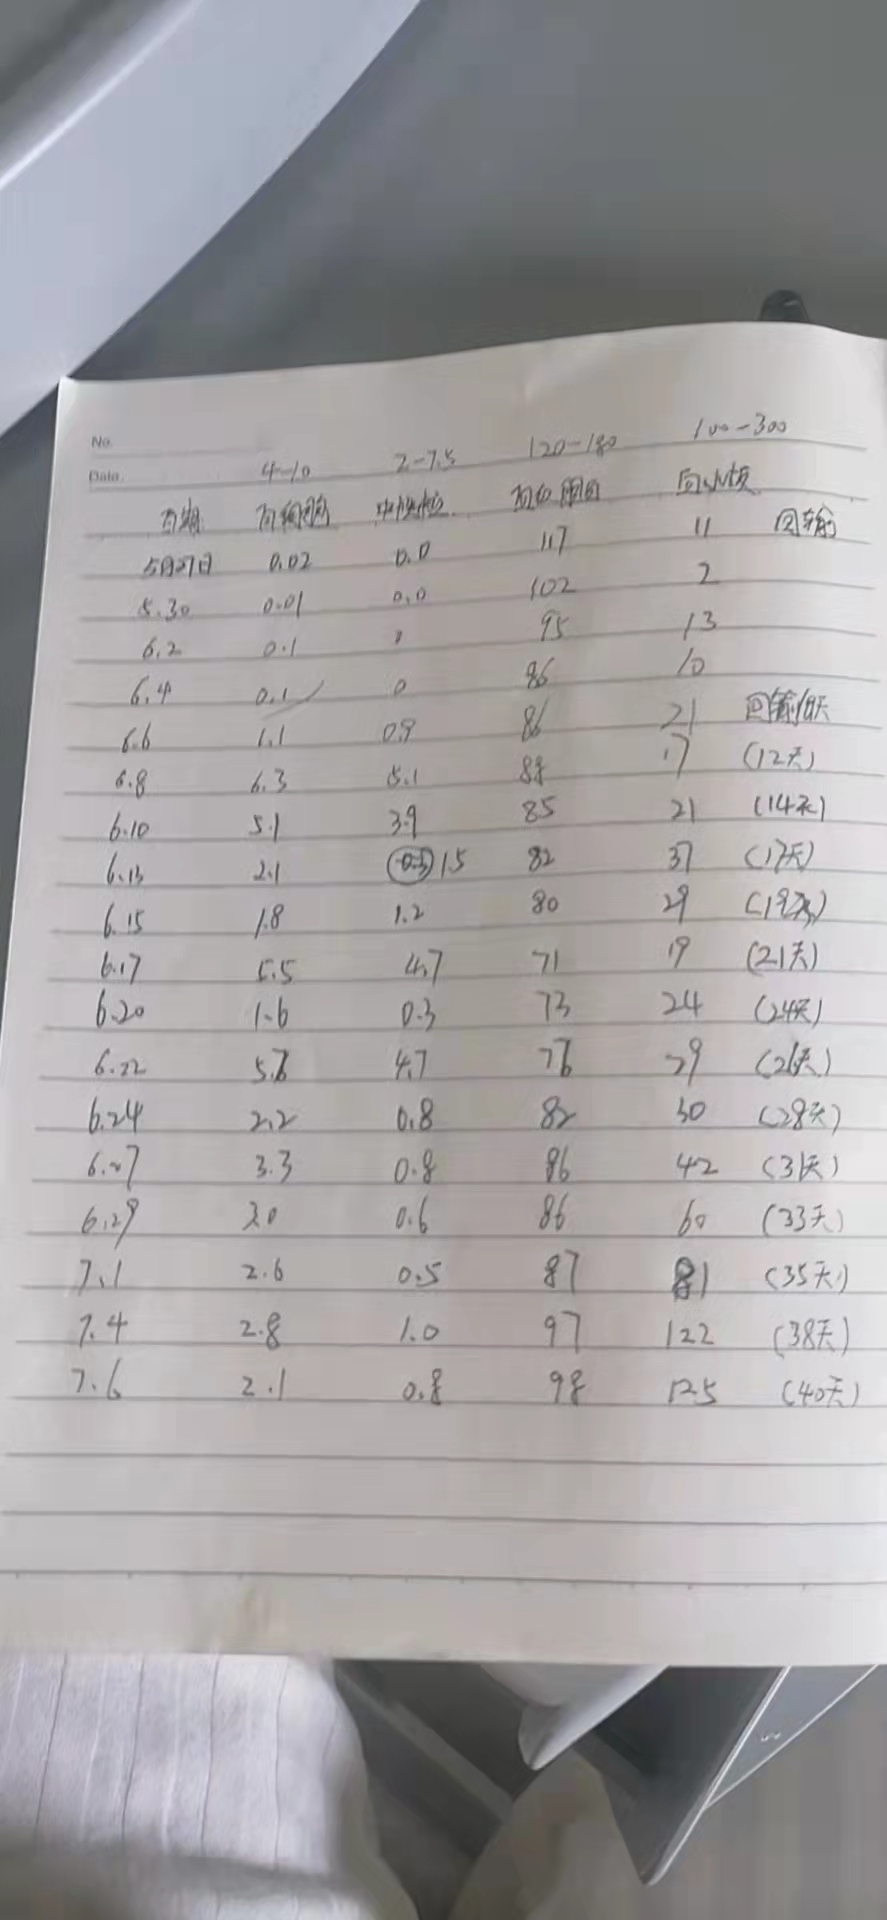 No.
Date.
4-10 2-7.5 120-180 100-300
日期 白细胞 中性粒 血红蛋白 血小板 回输
5月27日 0.02 0.0 117 11
5.30 0.01 0.0 102 2
6.2 0.1 0 95 13
6.4 0.1 0 86 10
6.6 1.1 0.9 86 21 回输
6.8 6.3 5.1 88 17 (12天)
6.10 5.1 3.9 85 21 (14天)
6.13 2.1 1.5 82 37 (17天)
6.15 1.8 1.2 80 29 (19天)
6.17 5.5 4.7 71 19 (21天)
6.20 1.6 0.3 73 24 (24天)
6.22 5.6 4.7 76 29 (26天)
6.24 2.2 0.8 82 30 (28天)
6.27 3.3 0.8 86 42 (31天)
6.29 3.0 0.6 86 60 (33天)
7.1 2.6 0.5 87 81 (35天)
7.4 2.8 1.0 97 122 (38天)
7.6 2.1 0.8 98 125 (40天)